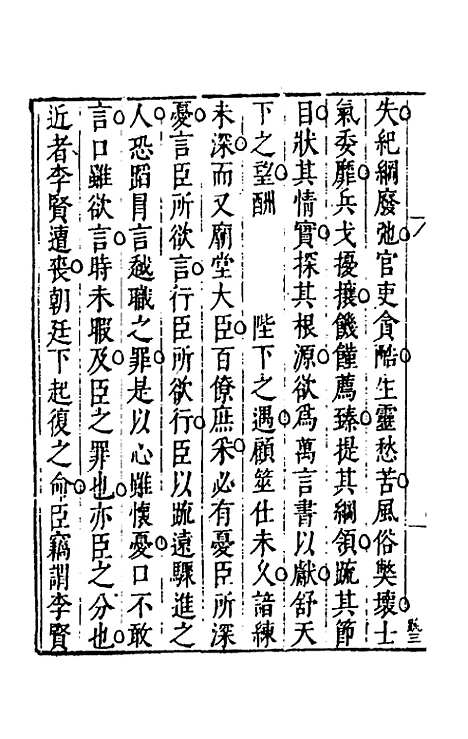 失紀綱廢弛官吏貪酷生靈愁苦風俗獘壞士
氣委靡兵戈擾攘饑饉薦臻提其綱領疏其節
目狀其情實探其根源欲爲萬言書以獻舒天
下之望酬　陛下之遇顧筮仕未久諳練
未深而又廟堂大臣百僚庶采必有憂臣所深
憂言臣所欲言行臣所欲行臣以疏遠驟進之
人恐蹈冐言越職之罪是以心雖懷憂口不敢
言口雖欲言時未暇及臣之罪也亦臣之分也
近者李賢遭喪朝廷下起復之命臣竊謂李賢